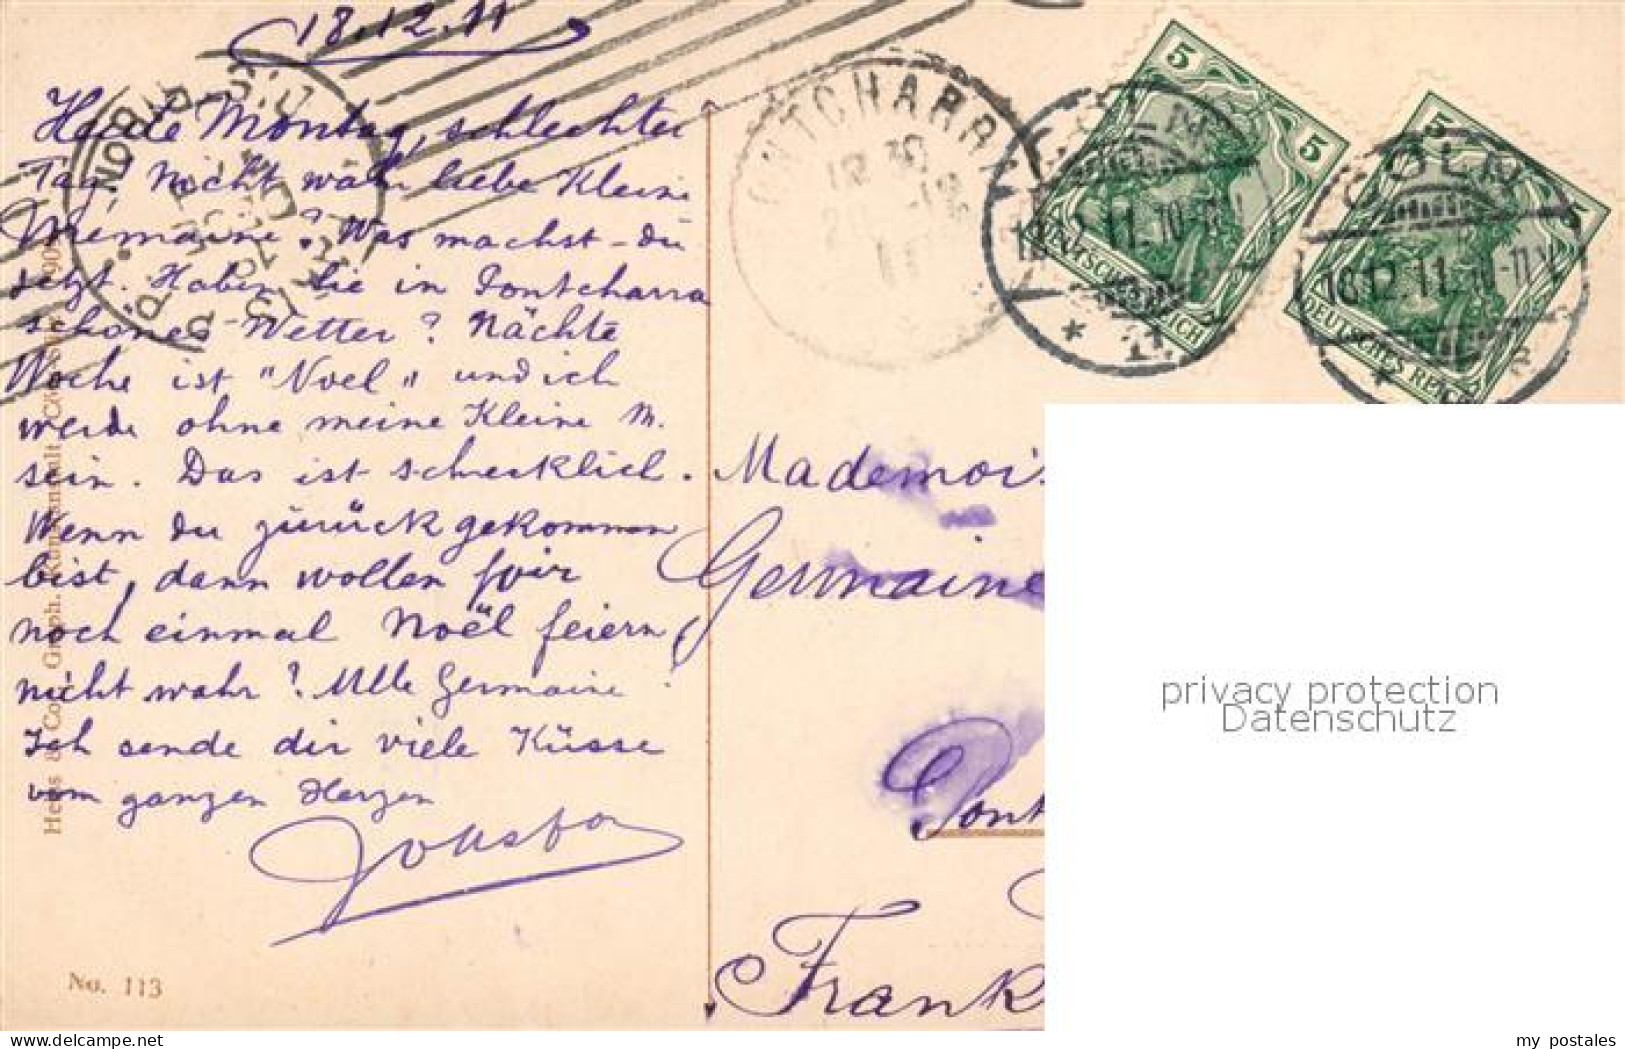 18.12.11
Heute Montag, schlechter
Tag! Nicht wahr liebe Kleine
Mémaine? Was machst-du
jetzt. Haben Sie in Pontcharra
schönes Wetter? Nächte
Woche ist "Noel" und ich
werde ohne meine Kleine M.
sein. Das ist schrecklich.
Wenn du zurück gekommen
bist, dann wollen wir
noch einmal Noël feiern,
nicht wahr? Mlle Germaine!
Ich sende dir viele Küsse
vom ganzen Herzen
No. 113
PONTCHARRA
18 30
CÖLN
18.12.11.10-11V
5
5
DEUTSCHES REICH
CÖLN
18.12.11.10-11V
5
5
DEUTSCHES REICH
Mademois
Germaine
Pont
Frank
privacy protection
Datenschutz
my postales
www.delcampe.net